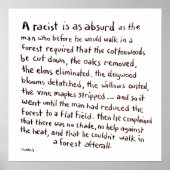 A racist is as absurd as the
man who before he would walk in a
forest required that the cottonwoods
be cut down, the oaks removed,
the elms eliminated, the dogwood
blooms detatched, the willows ousted,
the vine maples stripped... and so it
went until the man had reduced the
forest to a flat field. Then he complained
that there was no shade, no help against
the heat, and that he couldn't walk in
a forest afterall.